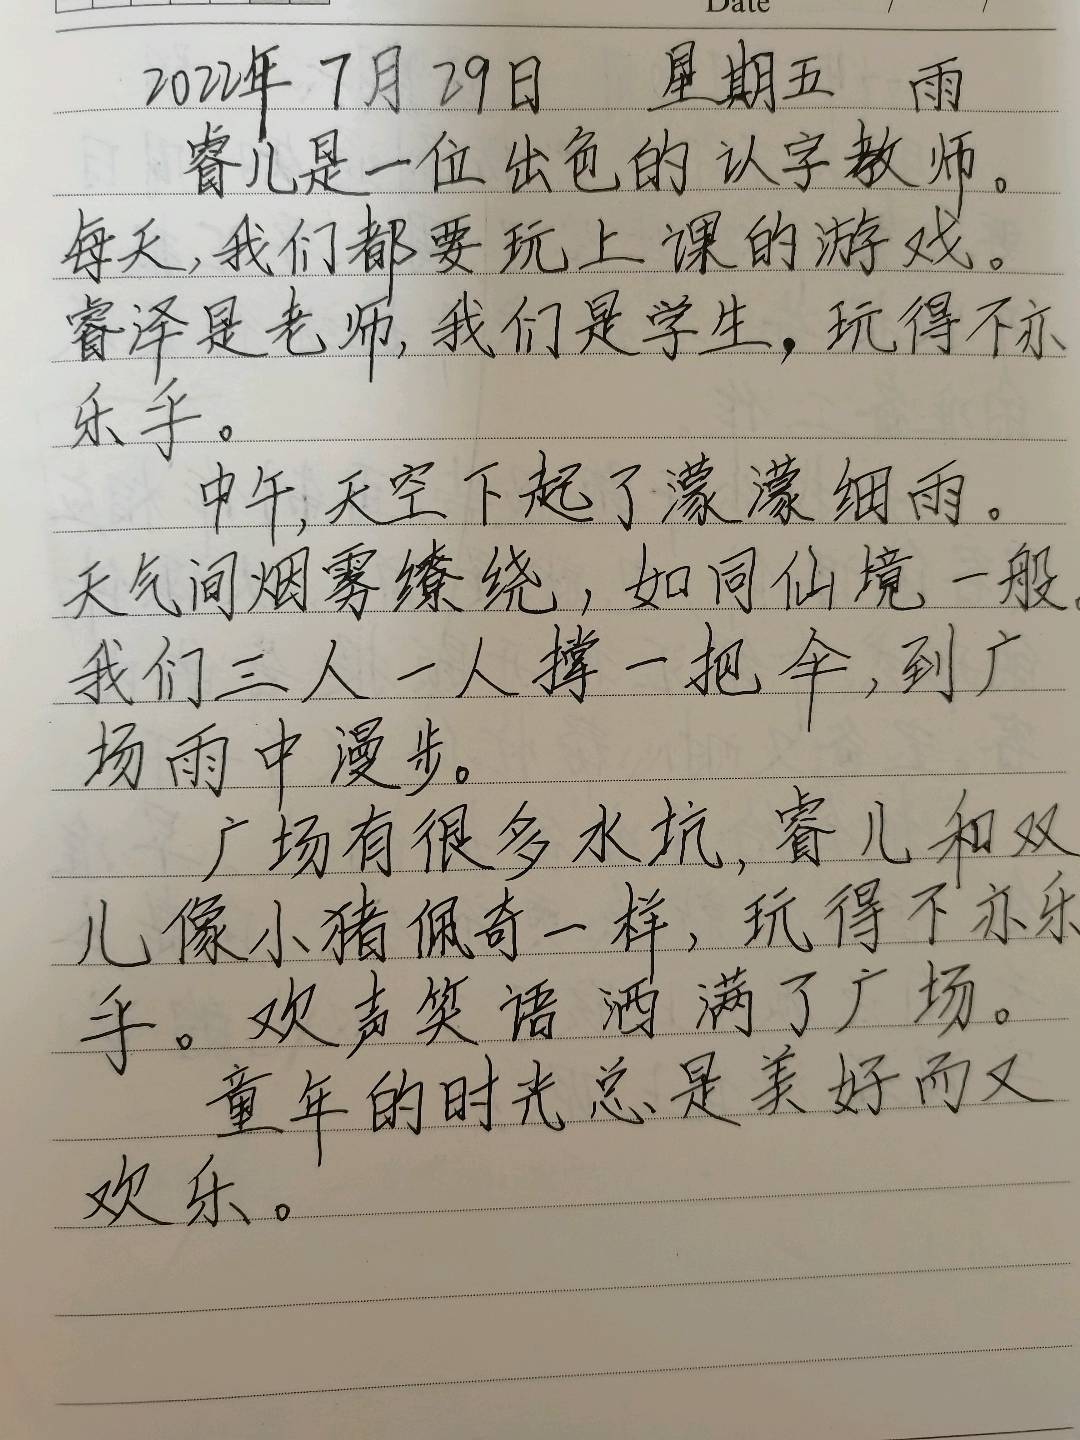 Date / /
2022年7月29日 星期五 雨
睿儿是一位出色的认字教师。
每天,我们都要玩上课的游戏。
睿泽是老师,我们是学生,玩得不亦
乐乎。
中午,天空下起了濛濛细雨。
天气间烟雾缭绕,如同仙境一般。
我们三人一人撑一把伞,到广
场雨中漫步。
广场有很多水坑,睿儿和双
儿像小猪佩奇一样,玩得不亦乐
乎。欢声笑语洒满了广场。
童年的时光总是美好而又
欢乐。